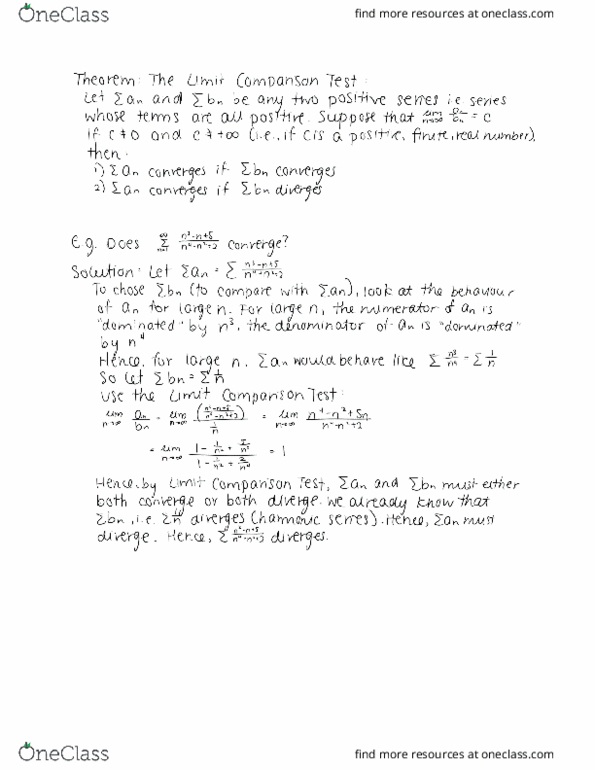 OneClass
find more resources at oneclass.com
Theorem: The Limit Comparison Test:
Let Σan and Σbn be any two positive series i.e series
whose terms are all positive. Suppose that lim n→∞ = c
if c ≠ 0 and c ≠ +∞ (i.e., if C is a positive, finite, real number),
then:
1) Σan converges if Σbn converges
2) Σan converges if Σbn diverges
E.g. Does ∞ Σ n=1 n³-n+5 / n⁴-n²+2 converge?
Solution: Let Σan = Σ n³-n+5 / n⁴-n²+2
To chose Σbn (to compare with Σan), look at the behaviour
of an for large n. For large n, the numerator of an is
"dominated" by n³, the denominator of an is "dominated"
by n⁴
Hence, for large n, Σan would behave like Σ n³/n⁴ = Σ 1/n
So let Σbn = Σ 1/n
Use the Limit Comparison Test:
lim n→∞ an/bn = lim n→∞ (n³-n+5 / n⁴-n²+2) / 1/n = lim n→∞ n⁴-n²+5n / n⁴-n²+2
= lim n→∞ 1 - 1/n² + 5/n³ / 1 - 1/n² + 2/n⁴ = 1
Hence, by Limit Comparison Test, Σan and Σbn must either
both converge or both diverge. we already know that
Σbn, i.e. Σ 1/n diverges (harmonic series). Hence, Σan must
diverge. Hence, Σ n³-n+5 / n⁴-n²+2 diverges.
OneClass
find more resources at oneclass.com